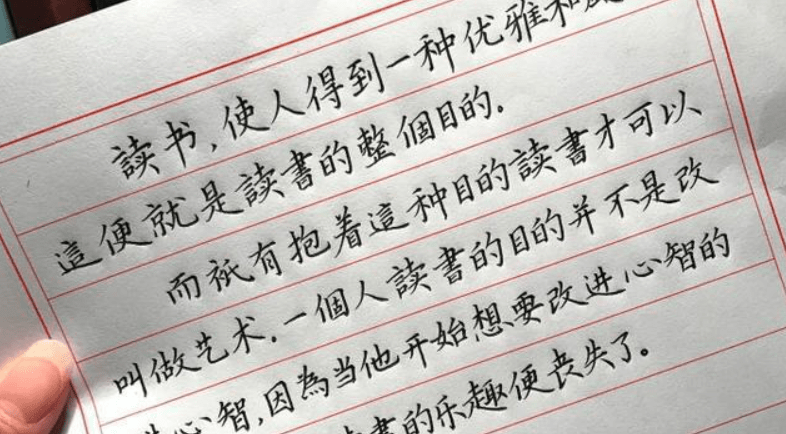 讀书,使人得到一种优雅和
這便就是讀書的整個目的.
而祇有抱着這种目的讀書才可以
叫做艺术.一個人讀書的目的并不是改
进心智,因為当他开始想要改进心智的
書的乐趣便丧失了。